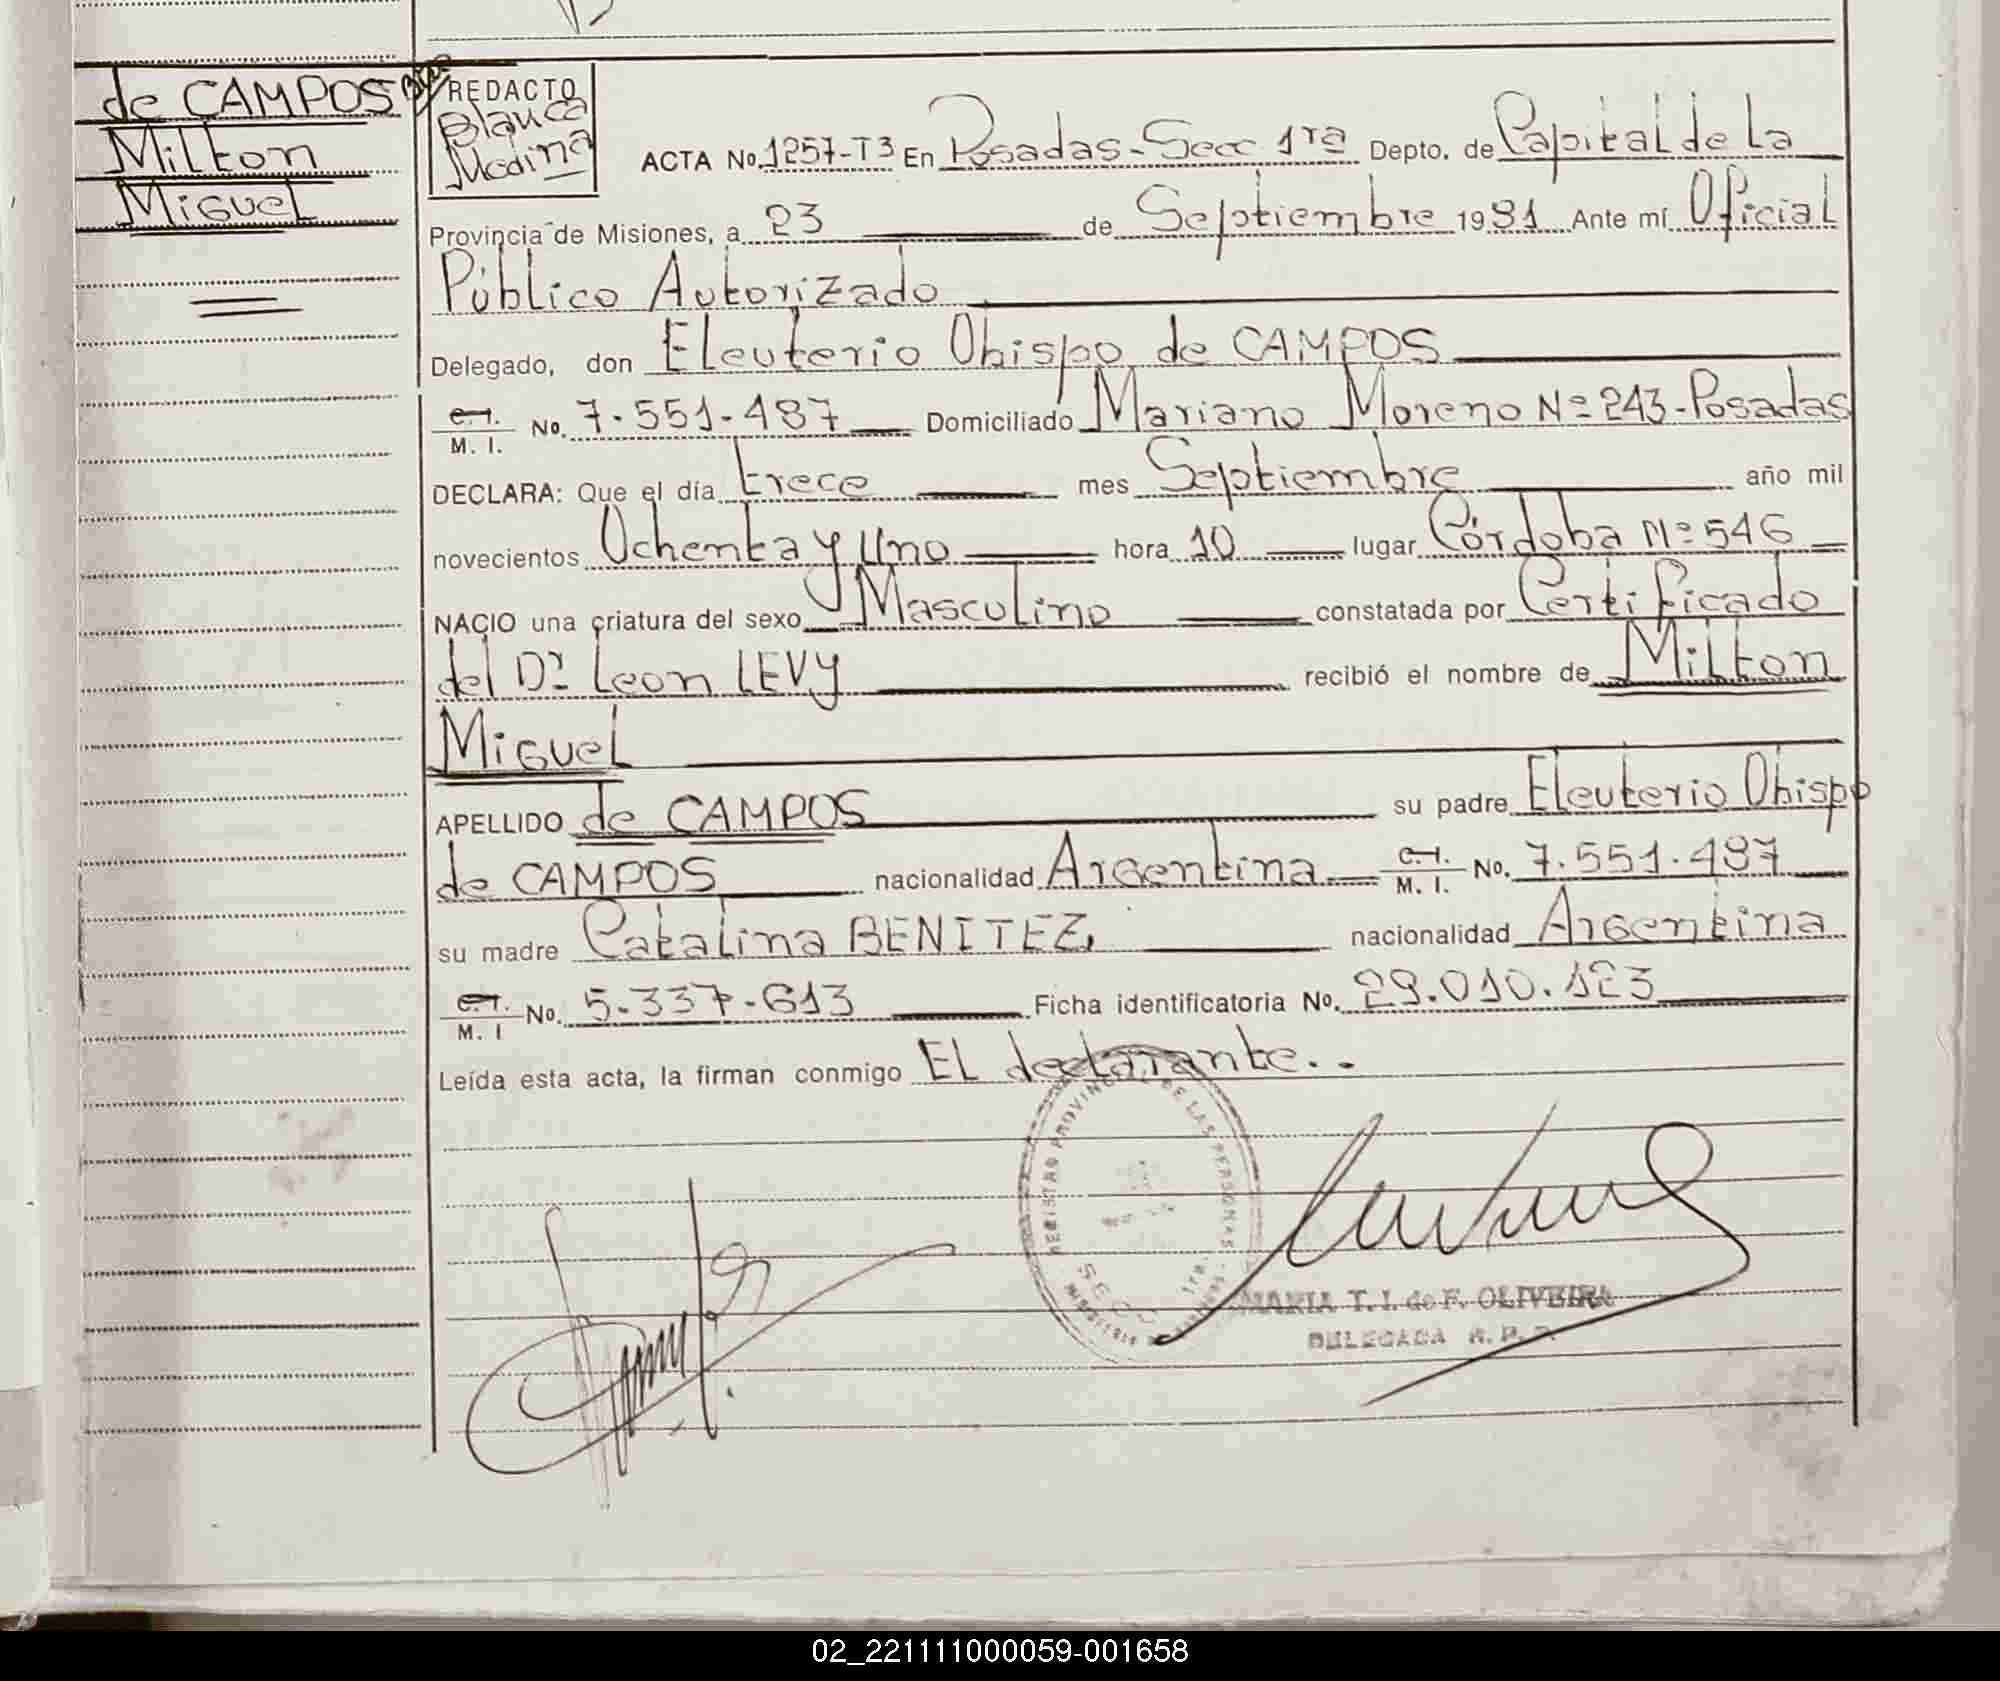 de CAMPOS
Milton
Miguel
REDACTO
Blanca
Medina
ACTA No. 1257-T3 En Posadas-Secc 1ra Depto. de Capital de La
Provincia de Misiones, a 23 de Septiembre 1981 Ante mí Oficial
Público Autorizado
Delegado, don Eleuterio Obispo de CAMPOS
C.I. / M. I. No. 7.551.487 Domiciliado Mariano Moreno Nº 243-Posadas
DECLARA: Que el día trece mes Septiembre año mil
novecientos Ochenta y Uno hora 10 lugar Córdoba Nº 546
NACIO una criatura del sexo Masculino constatada por Certificado
del Dr Leon LEVY recibió el nombre de Milton
Miguel
APELLIDO de CAMPOS su padre Eleuterio Obispo
de CAMPOS nacionalidad Argentina C.I. / M. I. No. 7.551.487
su madre Catalina BENITEZ, nacionalidad Argentina
C.I. / M. I No. 5.337.613 Ficha identificatoria No. 29.010.123
Leída esta acta, la firman conmigo EL declarante..
REGISTRO PROVINCIAL DE LAS PERSONAS
SECC. 1ra.
MISIONES
MARIA T. I. de F. OLIVEIRA
DELEGADA R. P. P.
02_221111000059-001658